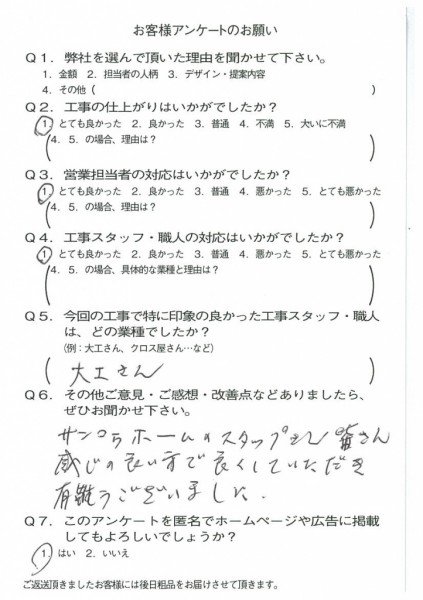 お客様アンケートのお願い
Q1. 弊社を選んで頂いた理由を聞かせて下さい。
1. 金額 2. 担当者の人柄 3. デザイン・提案内容
4. その他 ( )
Q2. 工事の仕上がりはいかがでしたか？
1. とても良かった 2. 良かった 3. 普通 4. 不満 5. 大いに不満
4. 5. の場合、理由は？
Q3. 営業担当者の対応はいかがでしたか？
1. とても良かった 2. 良かった 3. 普通 4. 悪かった 5. とても悪かった
4. 5. の場合、理由は？
Q4. 工事スタッフ・職人の対応はいかがでしたか？
1 とても良かった 2. 良かった 3. 普通 4. 悪かった 5. とても悪かった
4. 5. の場合、具体的な業種と理由は？
Q5. 今回の工事で特に印象の良かった工事スタッフ・職人
は、どの業種でしたか？
(例：大工さん、クロス屋さん…など)
大工さん
Q6. その他ご意見・ご感想・改善点などありましたら、
ぜひお聞かせ下さい。
サンコウホームのスタッフさん 皆さん
感じの良い方で良くしていただき
有難うございました.
Q7. このアンケートを匿名でホームページや広告に掲載
してもよろしいでしょうか？
1. はい 2. いいえ
ご返送頂きましたお客様には後日粗品をお届けさせて頂きます。